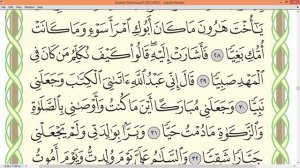 يَٰٓأُخْتَ هَٰرُونَ مَا كَانَ أَبُوكِ ٱمْرَأَ سَوْءٍ وَمَا كَانَتْ
أُمُّكِ بَغِيًّا ٢٨ فَأَشَارَتْ إِلَيْهِ قَالُوا۟ كَيْفَ نُكَلِّمُ مَن كَانَ فِى
ٱلْمَهْدِ صَبِيًّا ٢٩ قَالَ إِنِّى عَبْدُ ٱللَّهِ ءَاتَىٰنِىَ ٱلْكِتَٰبَ وَجَعَلَنِى
نَبِيًّا ٣٠ وَجَعَلَنِى مُبَارَكًا أَيْنَ مَا كُنتُ وَأَوْصَٰنِى بِٱلصَّلَوٰةِ
وَٱلزَّكَوٰةِ مَا دُمْتُ حَيًّا ٣١ وَبَرًّۢا بِوَٰلِدَتِى وَلَمْ يَجْعَلْنِى
جَبَّارًا شَقِيًّا ٣٢ وَٱلسَّلَٰمُ عَلَىَّ يَوْمَ وُلِدتُّ وَيَوْمَ أَمُوتُ